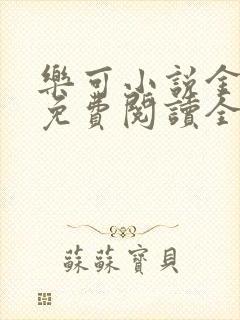 樂可小說全
免費閱讀全
蘇蘇寶貝